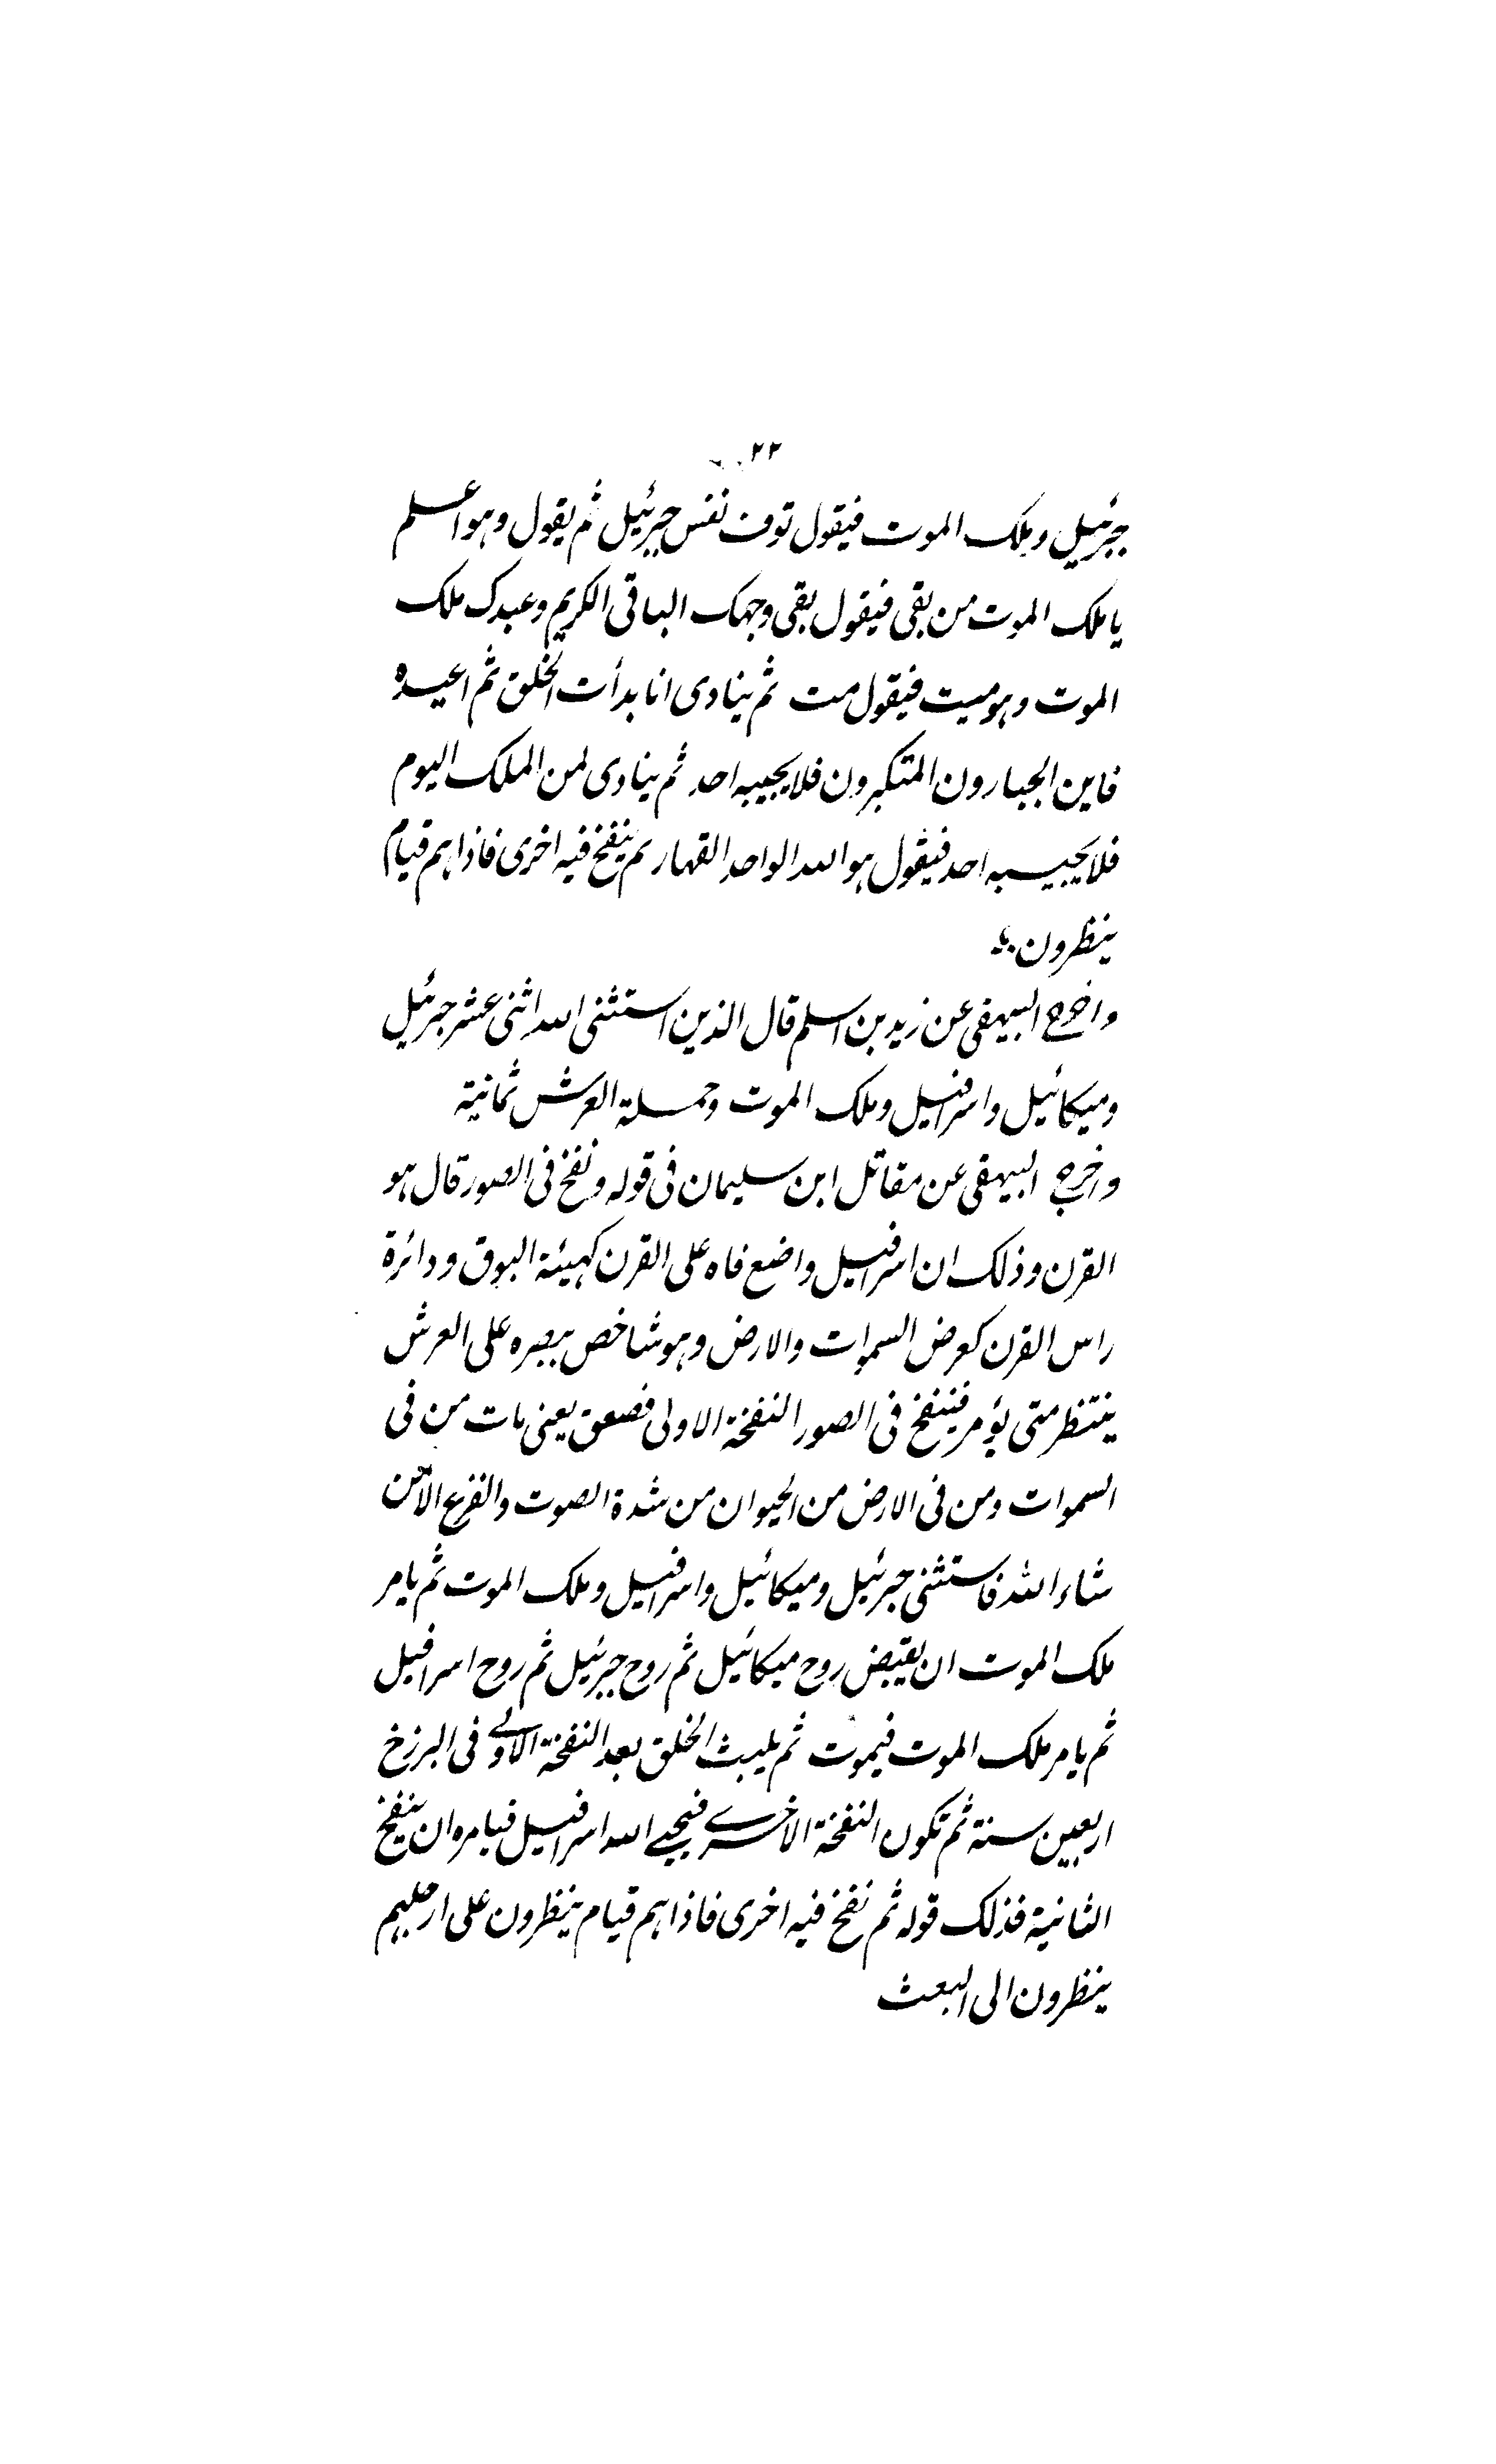 ٢٢
جبرئيل وملك الموت فيقول توف نفس جبرئيل ثم يقول وهو اعلم
يا ملك الموت من بقى فيقول بقى وجهك الباقى الكريم وعبدك ملك
الموت وهو ميت فيقول مت ثم ينادى انا بدأت الخلق ثم اعيده
فاين الجبارون المتكبرون فلا يجيبه احد ثم ينادى لمن الملك اليوم
فلا يجيبه احد فيقول هو الله الواحد القهار ثم ينفخ فيه اخرى فاذا هم قيام
ينظرون
واخرج البيهقى عن زيد بن اسلم قال الذين استثنى الله اثنى عشر جبرئيل
وميكائيل واسرافيل وملك الموت وحملة العرش ثمانية
واخرج البيهقى عن مقاتل ابن سليمان فى قوله ونفخ فى الصور قال هو
القرن وذلك ان اسرافيل واضع فاه على القرن كهيئة البوق ودائرة
راس القرن كعرض السموات والارض وهو شاخص ببصره على العرش
ينتظر متى يؤمر فينفخ فى الصور النفخة الاولى فصعق يعنى مات من فى
السموات ومن فى الارض من الحيوان من شدة الصوت والفزع الا من
شاء الله فاستثنى جبرئيل وميكائيل واسرافيل وملك الموت ثم يامر
ملك الموت ان يقبض روح ميكائيل ثم روح جبرئيل ثم روح اسرافيل
ثم يامر ملك الموت فيموت ثم يلبث الخلق بعد النفخة الاولى فى البرزخ
اربعين سنة ثم تكون النفخة الاخرى فيحيى الله اسرافيل فيامره ان ينفخ
الثانية فذلك قوله ثم نفخ فيه اخرى فاذا هم قيام ينظرون على ارجلهم
ينظرون الى البعث